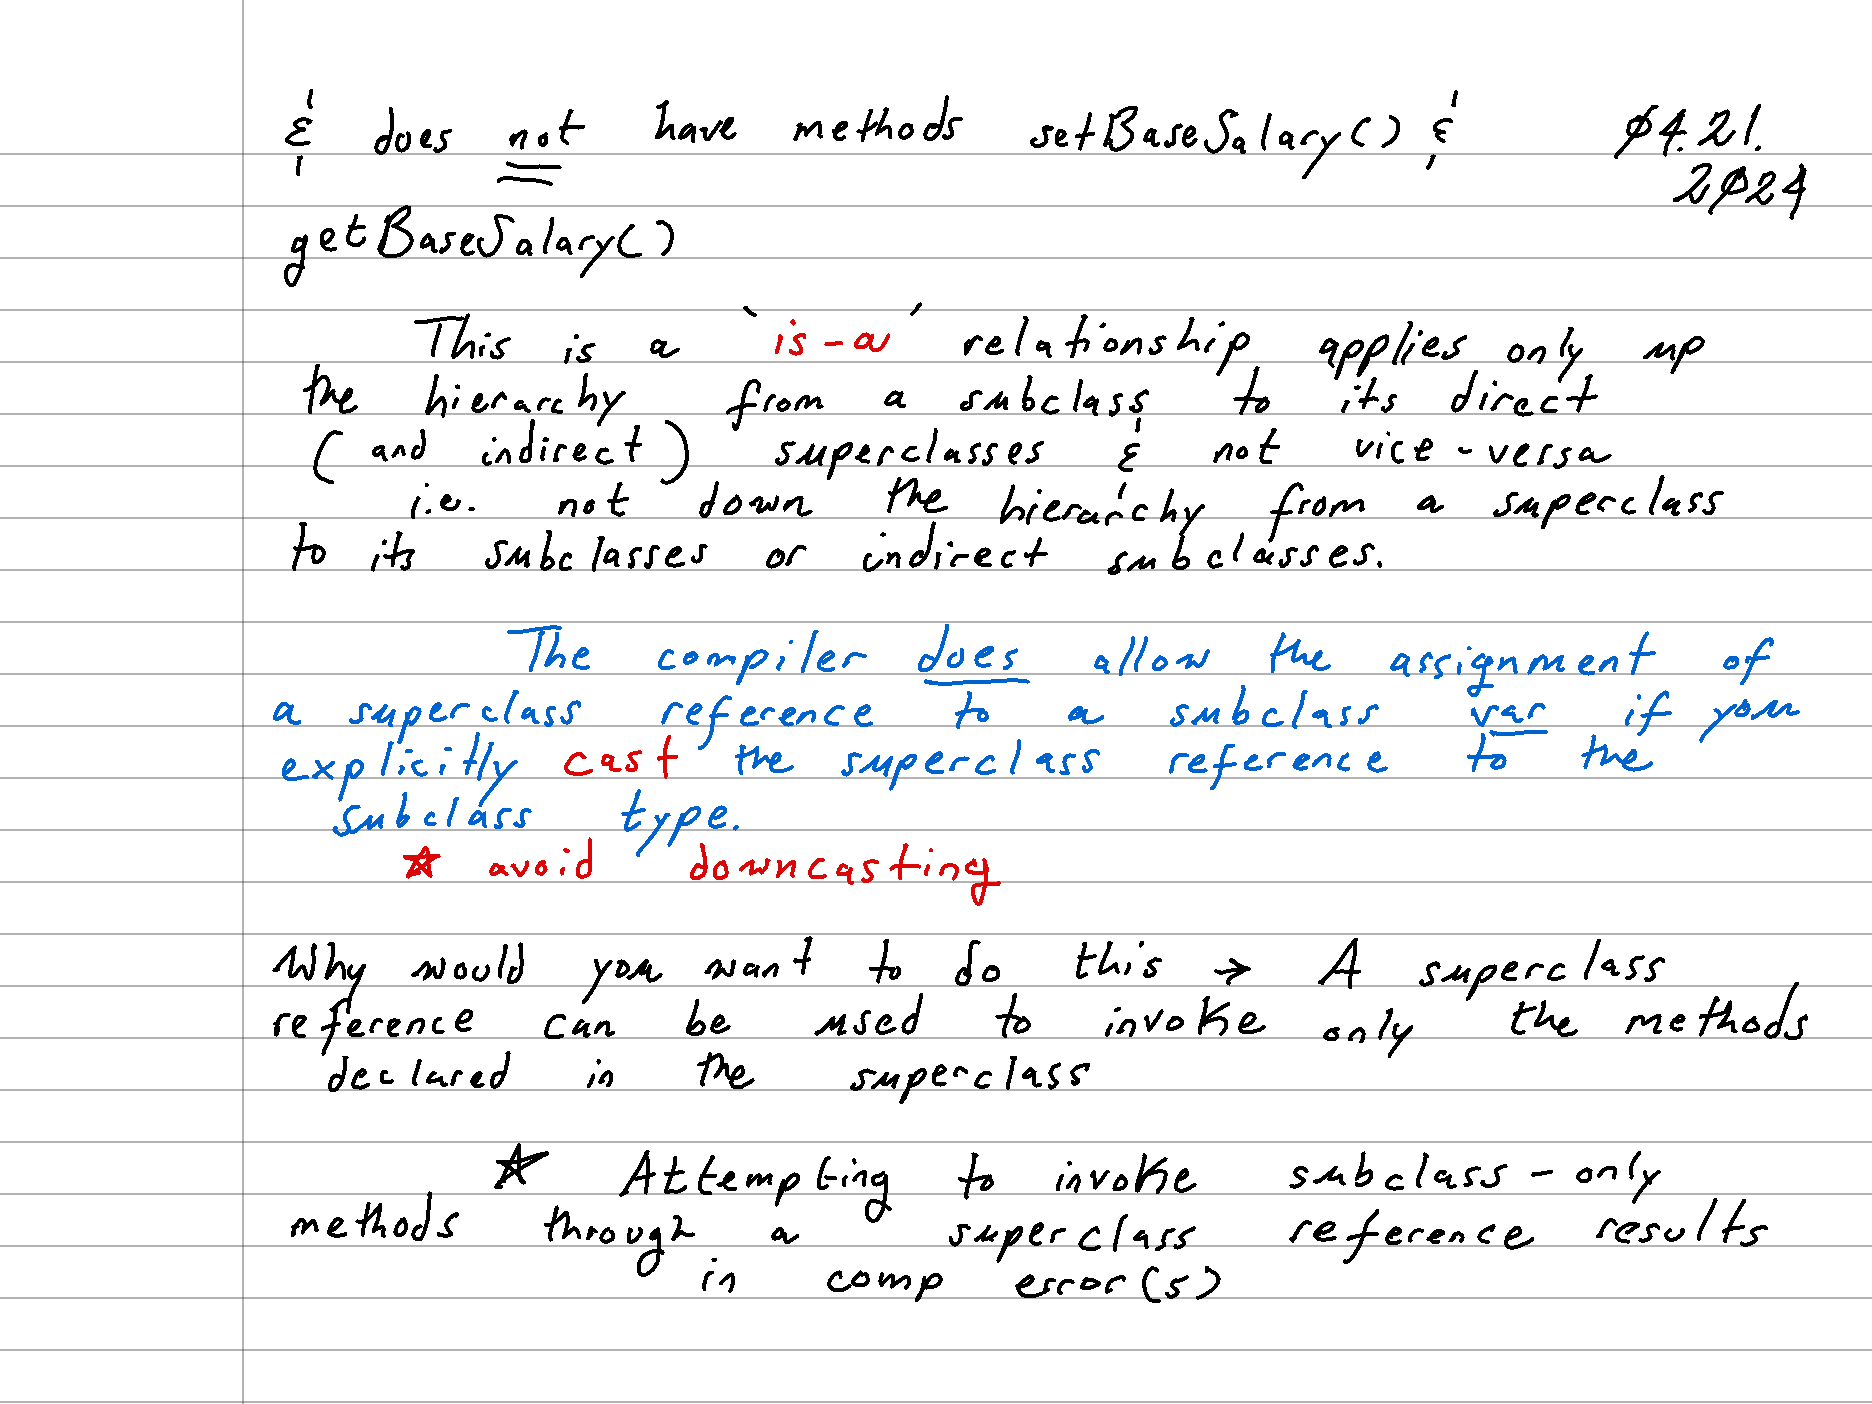 & does not have methods setBaseSalary() & Ø4.21.
2Ø24
getBaseSalary()
This is a `is-a' relationship applies only up
the hierarchy from a subclass to its direct
(and indirect) superclasses & not vice-versa
i.e. not down the hierarchy from a superclass
to its subclasses or indirect subclasses.
The compiler does allow the assignment of
a superclass reference to a subclass var if you
explicitly cast the superclass reference to the
subclass type.
☆ avoid downcasting
Why would you want to do this → A superclass
reference can be used to invoke only the methods
declared in the superclass
☆ Attempting to invoke subclass-only
methods through a superclass reference results
in comp error(s)